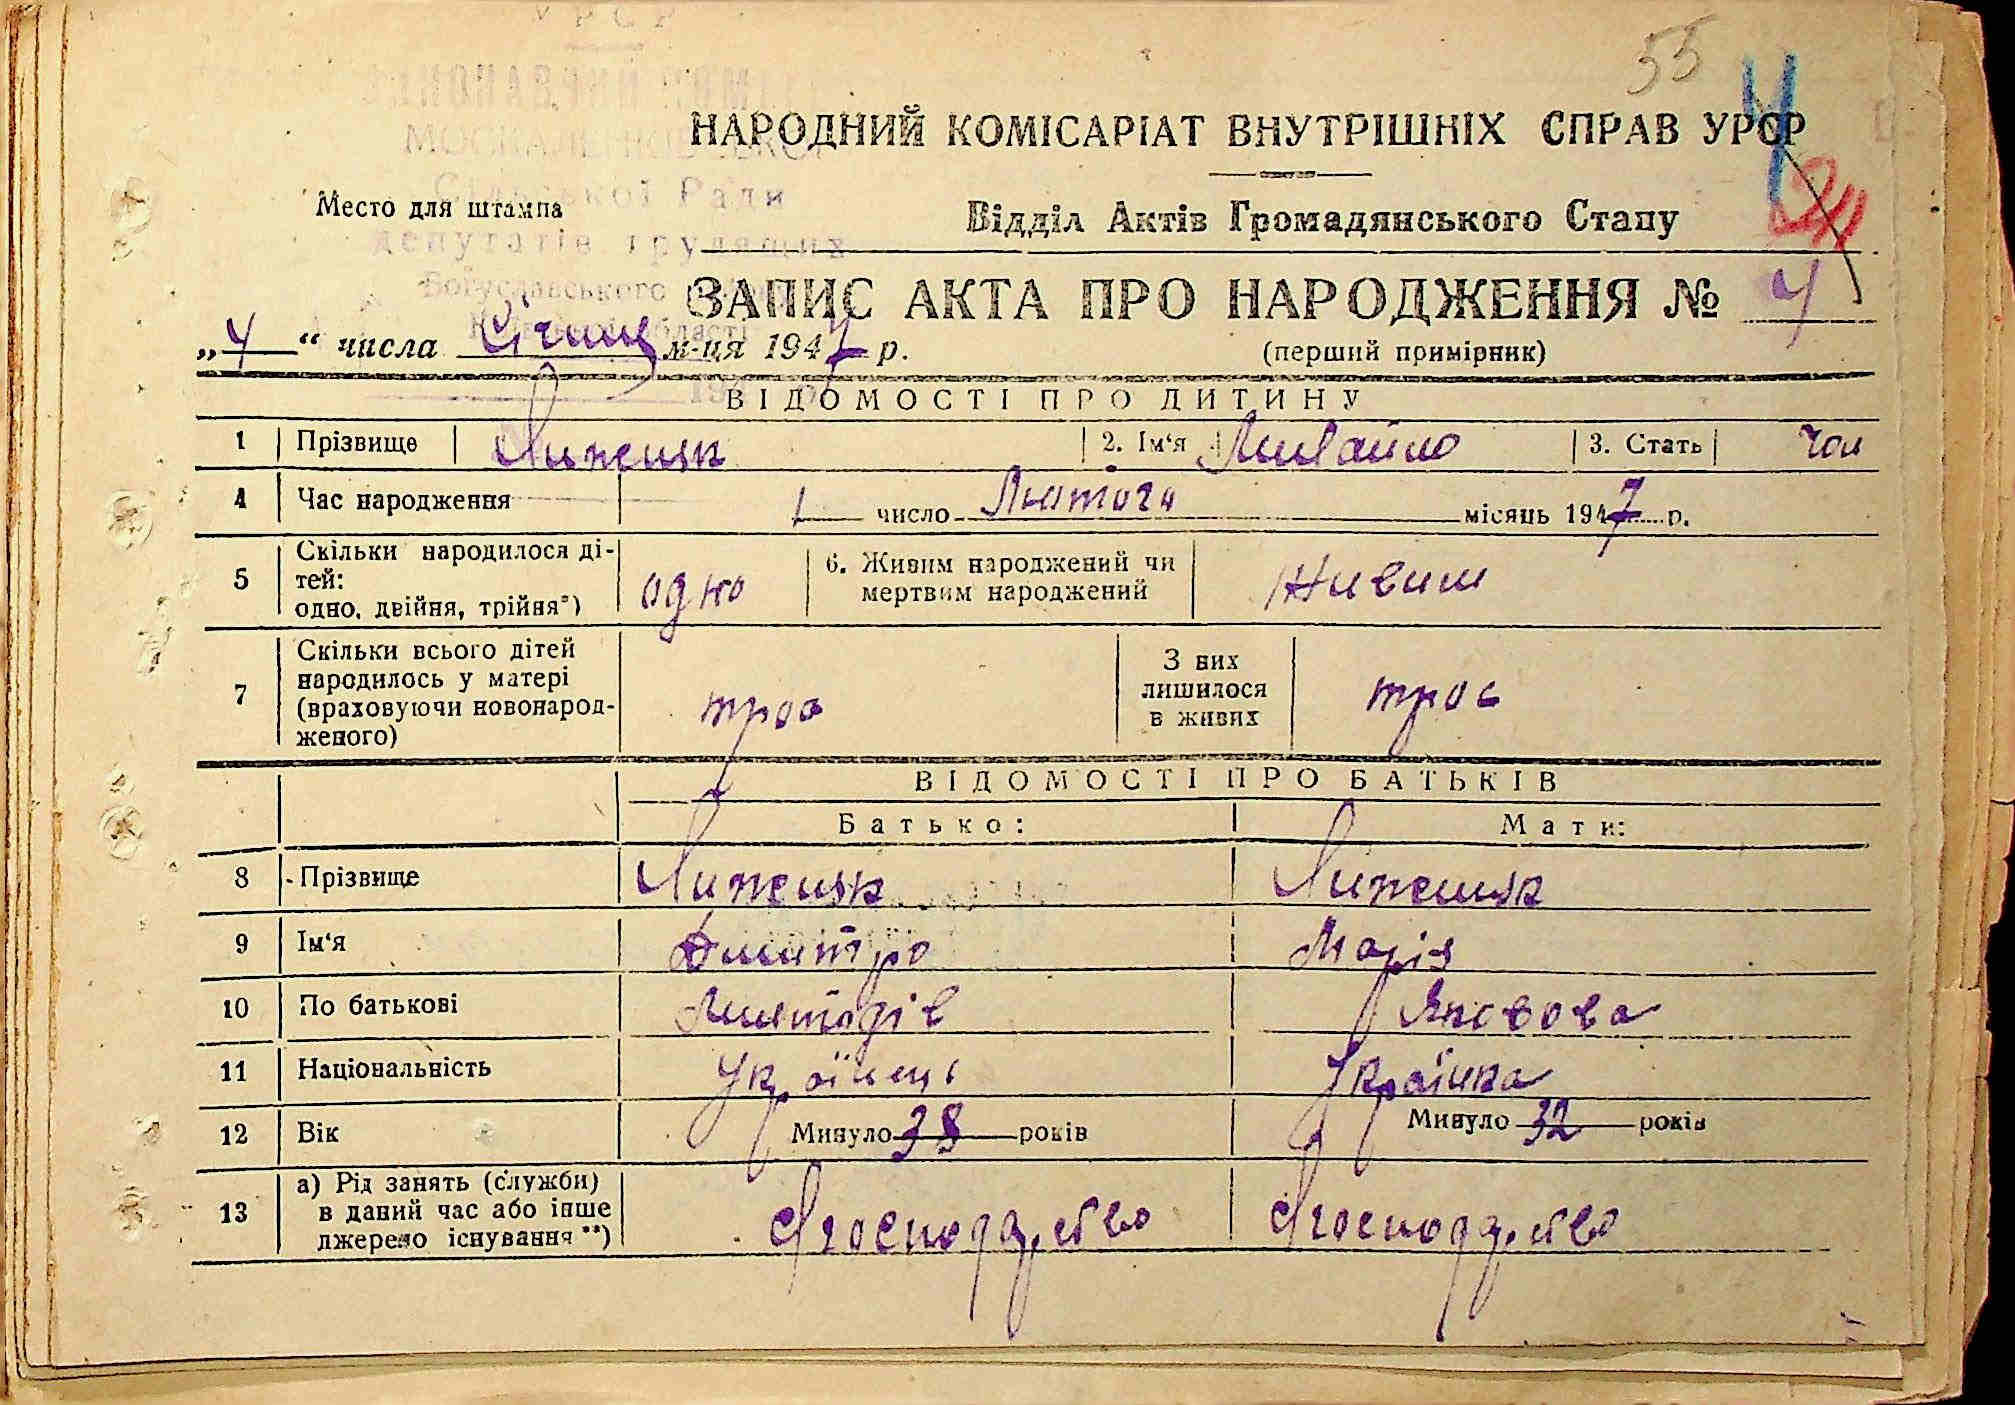 УРСР
ВИКОНАВЧИЙ КОМІТЕТ
МОСКАЛЕНКОВСЬКОЇ
Сільської Ради
депутатів трудящих
Богуславського
області
55
4
НАРОДНИЙ КОМІСАРІАТ ВНУТРІШНІХ СПРАВ УРСР
Место для штампа
Відділ Актів Громадянського Стану
ЗАПИС АКТА ПРО НАРОДЖЕННЯ № 4
„4“ числа Січня м-ця 1947 р.
(перший примірник)
ВІДОМОСТІ ПРО ДИТИНУ
1 Прізвище 2. Ім‘я Михайло 3. Стать Чол
4 Час народження 1 число Лютого місяць 1947 р.
5 Скільки народилося дітей: одно, двійня, трійня*) одно 6. Живим народжений чи мертвим народжений живим
7 Скільки всього дітей народилось у матері (враховуючи новонародженого) троє З них лишилося в живих троє
ВІДОМОСТІ ПРО БАТЬКІВ
Батько: Мати:
8 Прізвище
9 Ім‘я Дмитро Марія
10 По батькові Яковова
11 Національність Українець Українка
12 Вік Минуло 38 років Минуло 32 років
13 а) Рід занять (служби) в даний час або інше джерело існування **)